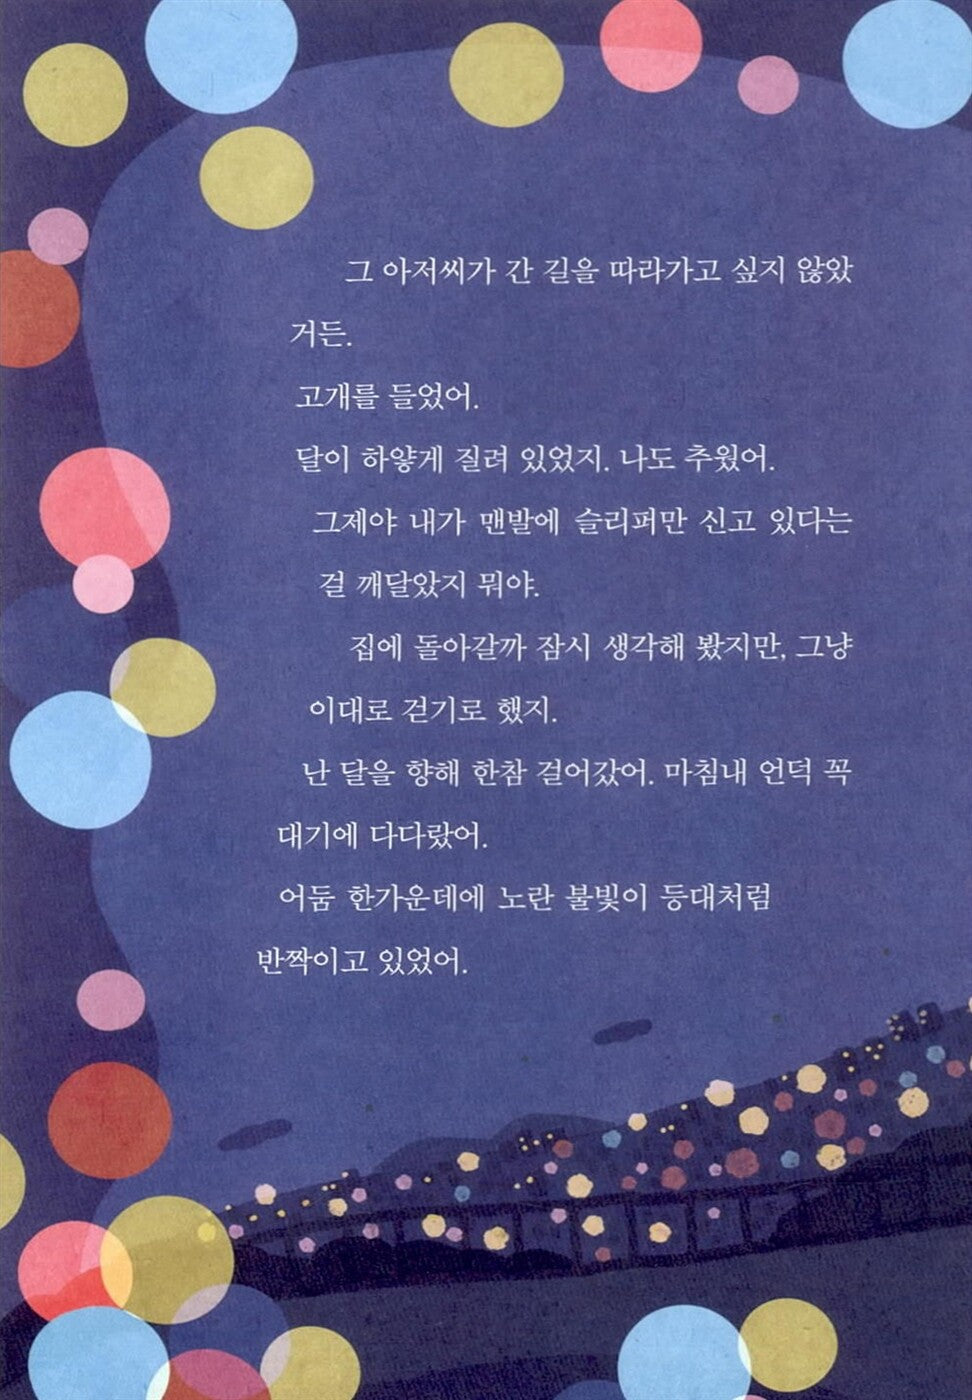 그 아저씨가 간 길을 따라가고 싶지 않았
거든.
고개를 들었어.
달이 하얗게 질려 있었지. 나도 추웠어.
그제야 내가 맨발에 슬리퍼만 신고 있다는
걸 깨달았지 뭐야.
집에 돌아갈까 잠시 생각해 봤지만, 그냥
이대로 걷기로 했지.
난 달을 향해 한참 걸어갔어. 마침내 언덕 꼭
대기에 다다랐어.
어둠 한가운데에 노란 불빛이 등대처럼
반짝이고 있었어.